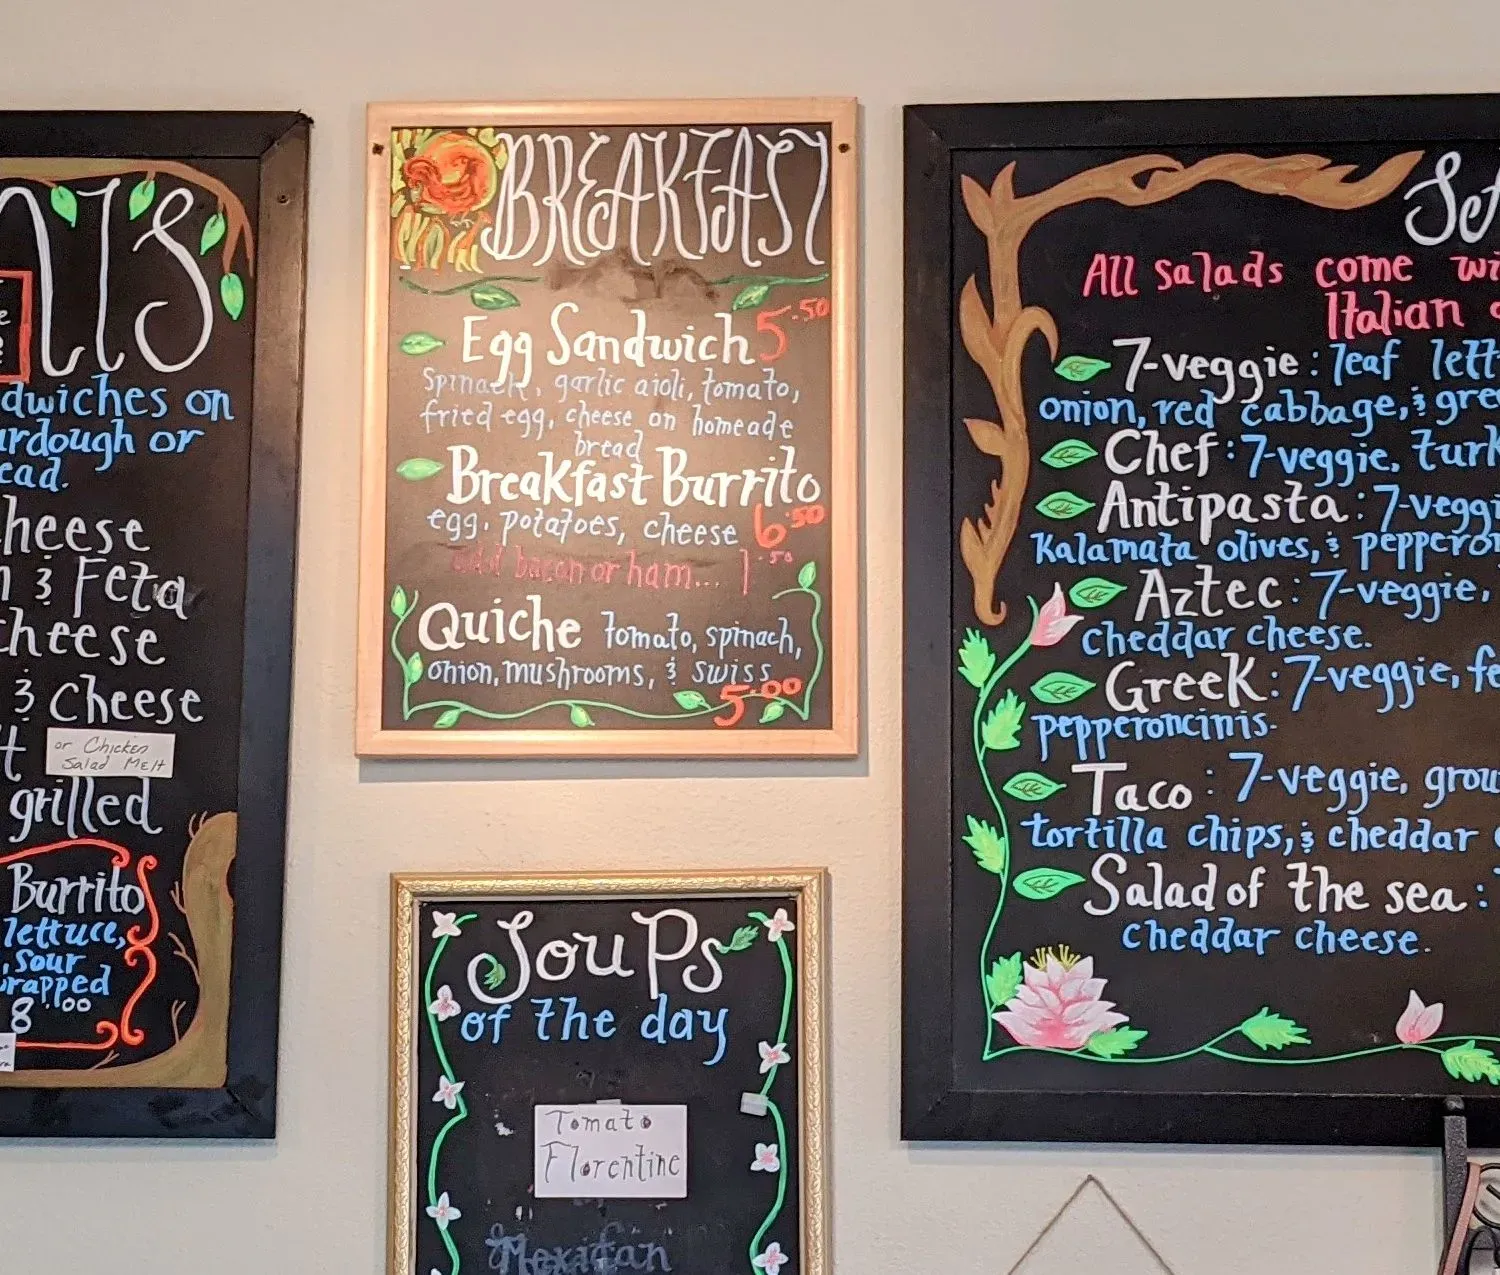 dwiches on
urdough or
ead.
heese
& Feta
cheese
& cheese
or Chicken
Salad Melt
grilled
Burrito
lettuce,
, sour
wrapped
8.00
BREAKFAST
Egg Sandwich 5.50
Spinach, garlic aioli, tomato,
fried egg, cheese on homeade
bread
Breakfast Burrito
egg, potatoes, cheese 6.50
add bacon or ham... 1.50
Quiche tomato, spinach,
onion, mushrooms, & swiss
5.00
Soups
of the day
Tomato
Florentine
All salads come wi
Italian
7-veggie: leaf lett
onion, red cabbage, & gre
Chef: 7-veggie, turk
Antipasta: 7-veggi
Kalamata olives, & pepperon
Aztec: 7-veggie,
cheddar cheese.
Greek: 7-veggie, fe
pepperoncinis.
Taco: 7-veggie, grou
tortilla chips, & cheddar
Salad of the sea:
cheddar cheese.